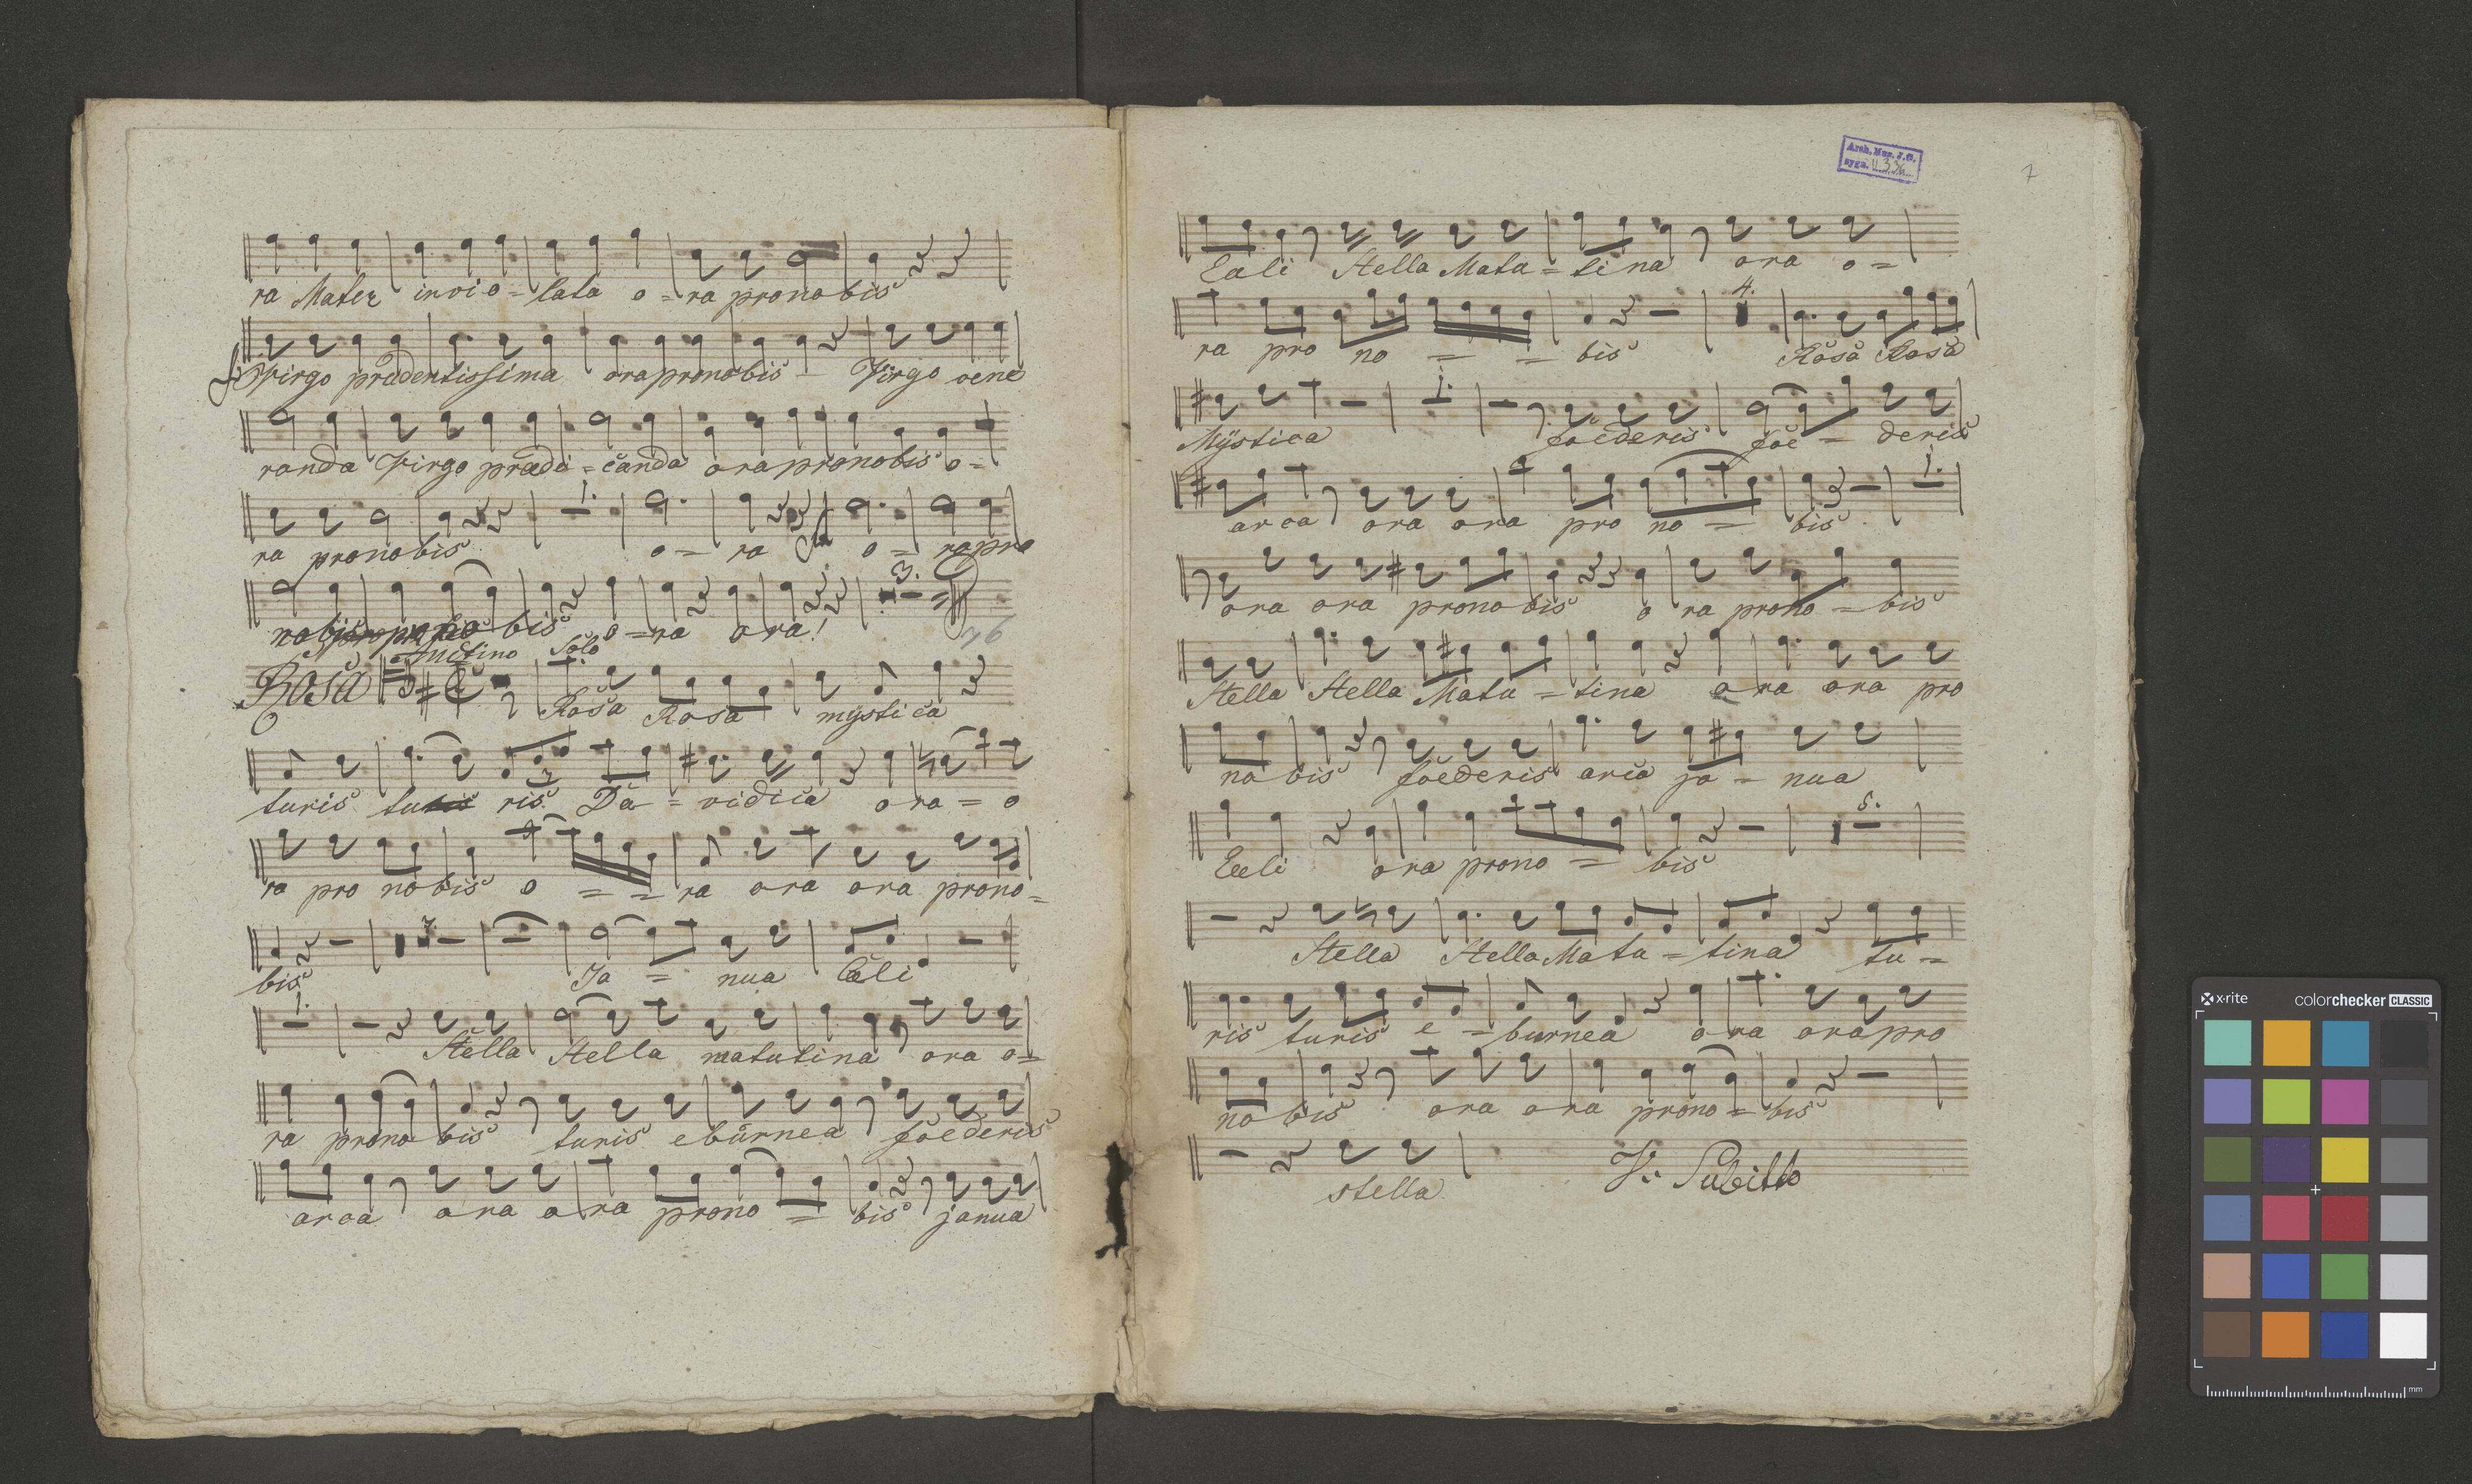 ra Mater invio=lata o=ra pronobis
Virgo prudentissima ora pronobis Virgo vene
randa Virgo prædi=canda ora pronobis o=
1.
ra pronobis o=ra o=rapro
3.
nobis bis o=ra ora!
Solo
Rosa Rosa Rosa mÿstica
turis tu ris Da=vidica ora=o
3
ra pro nobis o==ra ora ora prono=
bis Ja=nua Cœli
1.
Stella Stella matutina ora o=
ra prono bis turis eburnea foederis
arca ora ora prono=bis janua
Arch. Mus. J. G.
sygn.
7
Cæli Stella Matu=tina ora o=
4.
ra pro no==bis Rosa Rosa
1.
Mÿstica foederis foe=deris
1.
arca ora ora pro no=bis
ora ora pronobis ora prono=bis
Stella Stella Matu=tina ora ora pro
nobis foederis arca ja=nua
5.
Cœli ora prono=bis
Stella Stella Matu=tina tu=
ris turis e=burnea ora orapro
nobis ora ora prono=bis
stella V: Subitto
x·rite colorchecker CLASSIC
mm